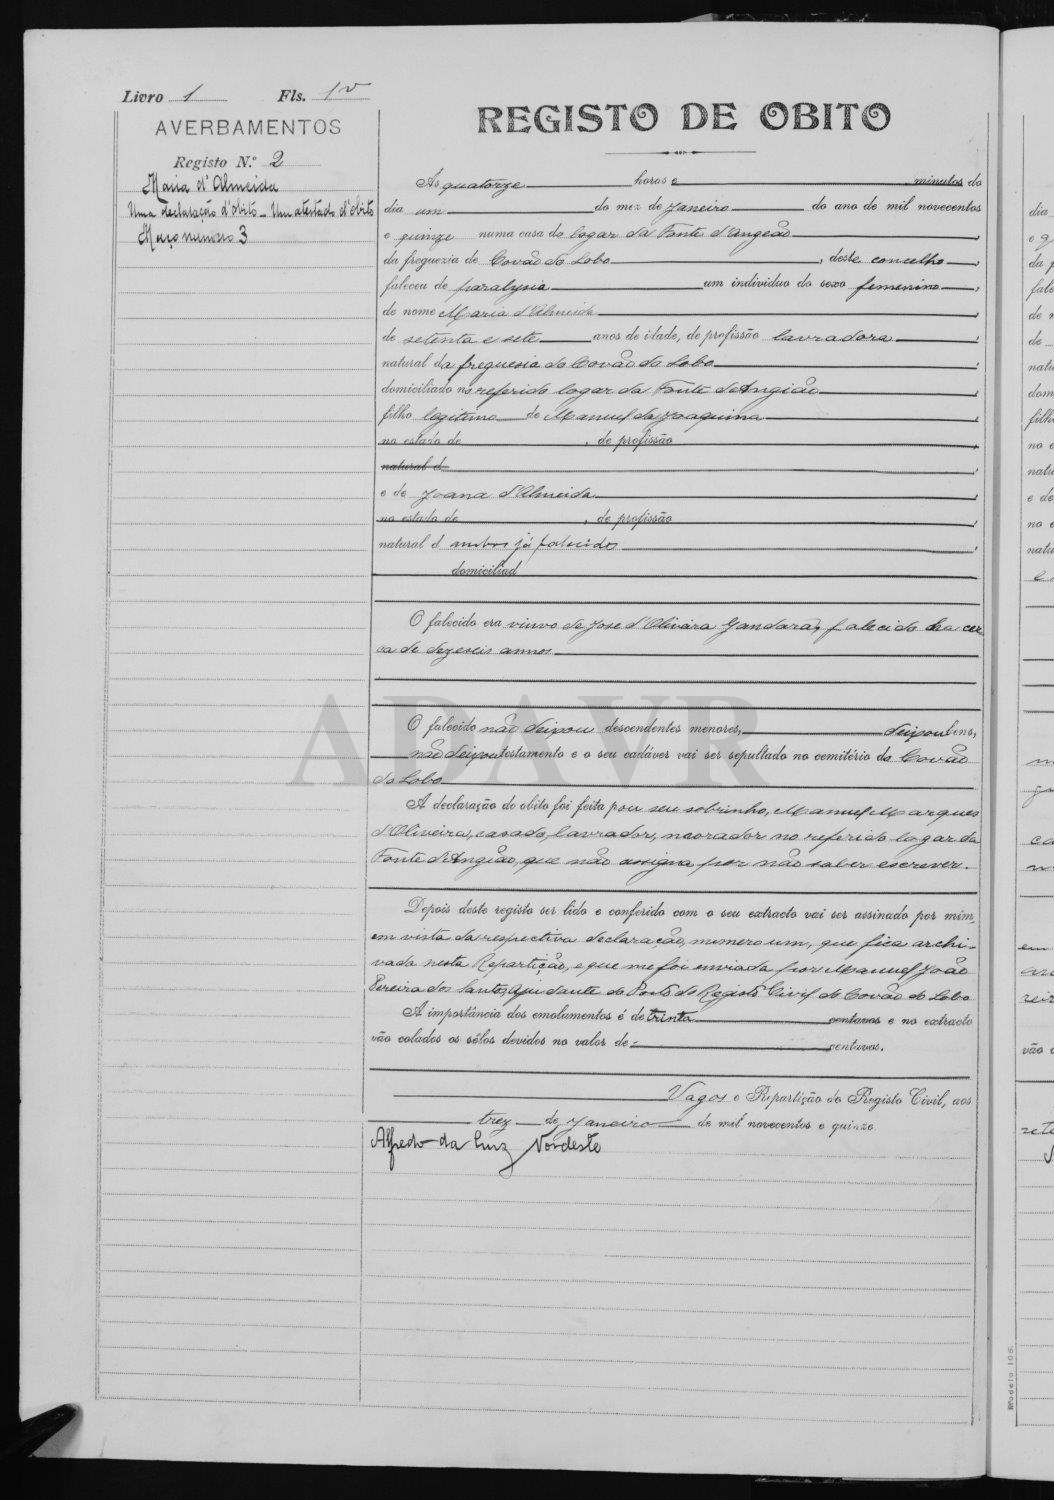 Livro 1 Fls. 1v
AVERBAMENTOS
Registo N.º 2
Maria d'Almeida
Uma declaração d'obito _ Um atestado d'obito
Março numero 3
REGISTO DE OBITO
Ás quatorze horas e minutos do
dia um do mez de Janeiro do ano de mil novecentos
e quinze numa casa do logar da Fonte d'Angeão,
da freguezia de Covão do Lobo, deste concelho,
faleceu de paralysia um individuo do sexo femenino,
de nome Maria d'Almeida,
de setenta e sete anos de idade, de profissão lavradora,
natural da freguesia do Covão do Lobo,
domiciliado no referido logar da Fonte d'Angião,
filho legitimo de Manuel da Joaquina,
no estado de , de profissão
natural d ,
e de Joana d'Almeida,
no estado de , de profissão ,
natural d ambos já falecidos,
domiciliad
O falecido era viuvo de Jose d'Oliveira Gandara, falecido ha cer
ca de dezeseis annos.
O falecido não deixou descendentes menores, deixou bens,
não deixou testamento e o seu cadáver vai ser sepultado no cemitério do Covão
do Lobo
A declaração do obito foi feita por seu sobrinho, Manuel Marques
d'Oliveira, casado, lavrador, morador no referido logar da
Fonte d'Angião, que não assigna por não saber escrever.
Depois deste registo ser lido e conferido com o seu extracto vai ser assinado por mim,
em vista da respectiva declaração, numero um, que fica archi-
vada nesta Repartição, e que me foi enviada por Manuel João
Pereira dos Santos, Ajudante do Posto do Registo Civil do Covão do Lobo
A importância dos emolumentos é de trinta centavos e no extracto
vão colados os sêlos devidos no valor de - centavos.
Vagos e Repartição do Registo Civil, aos
trez de Janeiro de mil novecentos e quinze.
Alfredo da Luz Nordeste
ADAVR
Modelo 106.